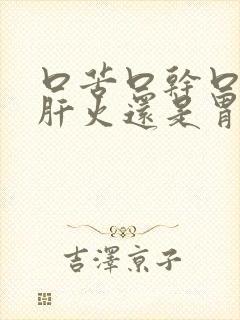 口苦口幹口
肝火還是胃
吉澤京子